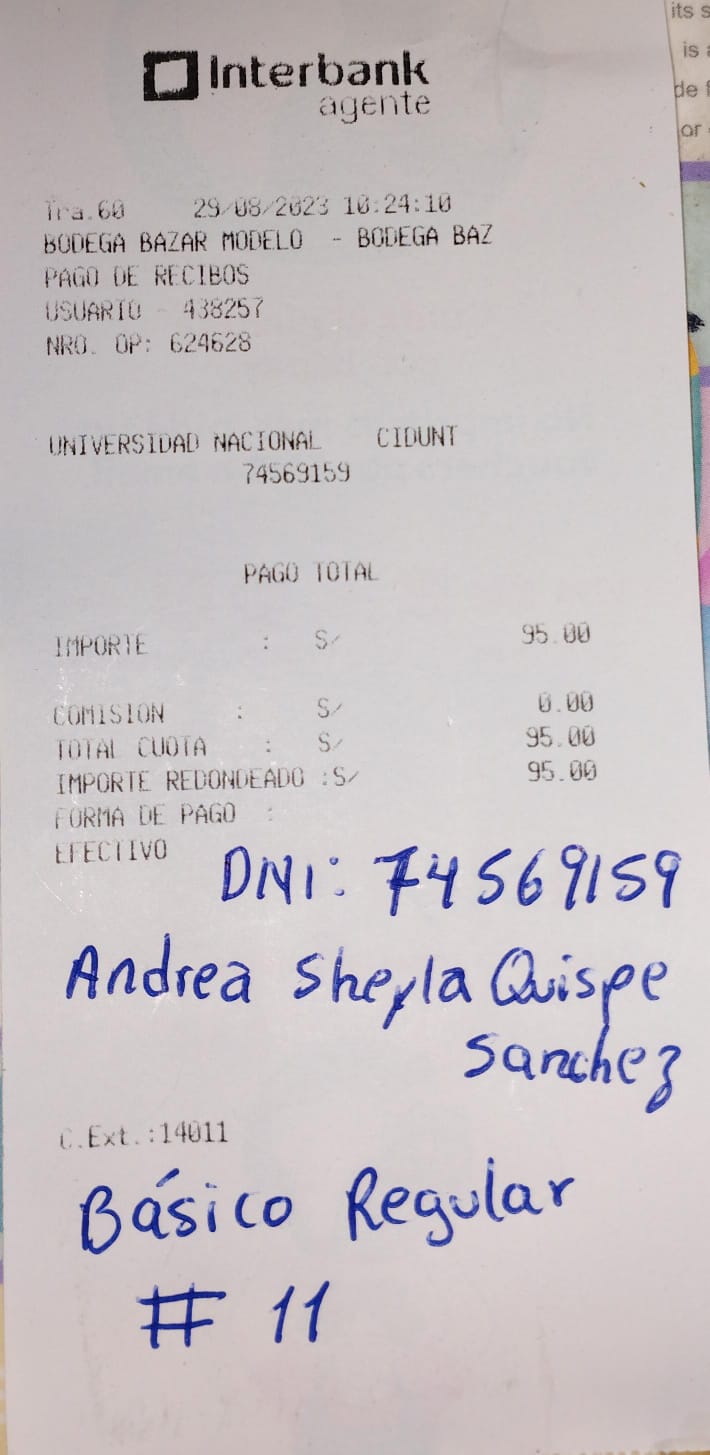 Interbank
agente
Tra.60 29/08/2023 10:24:10
BODEGA BAZAR MODELO - BODEGA BAZ
PAGO DE RECIBOS
USUARIO - 438257
NRO. OP: 624628
UNIVERSIDAD NACIONAL CIDUNT
74569159
PAGO TOTAL
IMPORTE : S/ 95.00
COMISION : S/ 0.00
TOTAL CUOTA : S/ 95.00
IMPORTE REDONDEADO :S/ 95.00
FORMA DE PAGO :
EFECTIVO
DNI: 74569159
Andrea Sheyla Quispe
Sanchez
C.Ext.:14011
Básico Regular
# 11
its
is
de
or